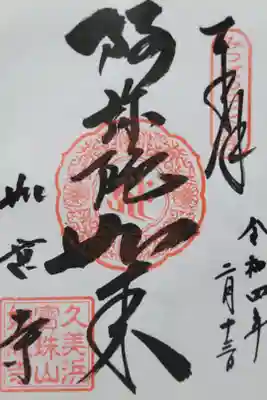 奉拝
令和四年
二月十三日
阿弥陀如来
如意寺
久美浜
寶珠山
如意寺